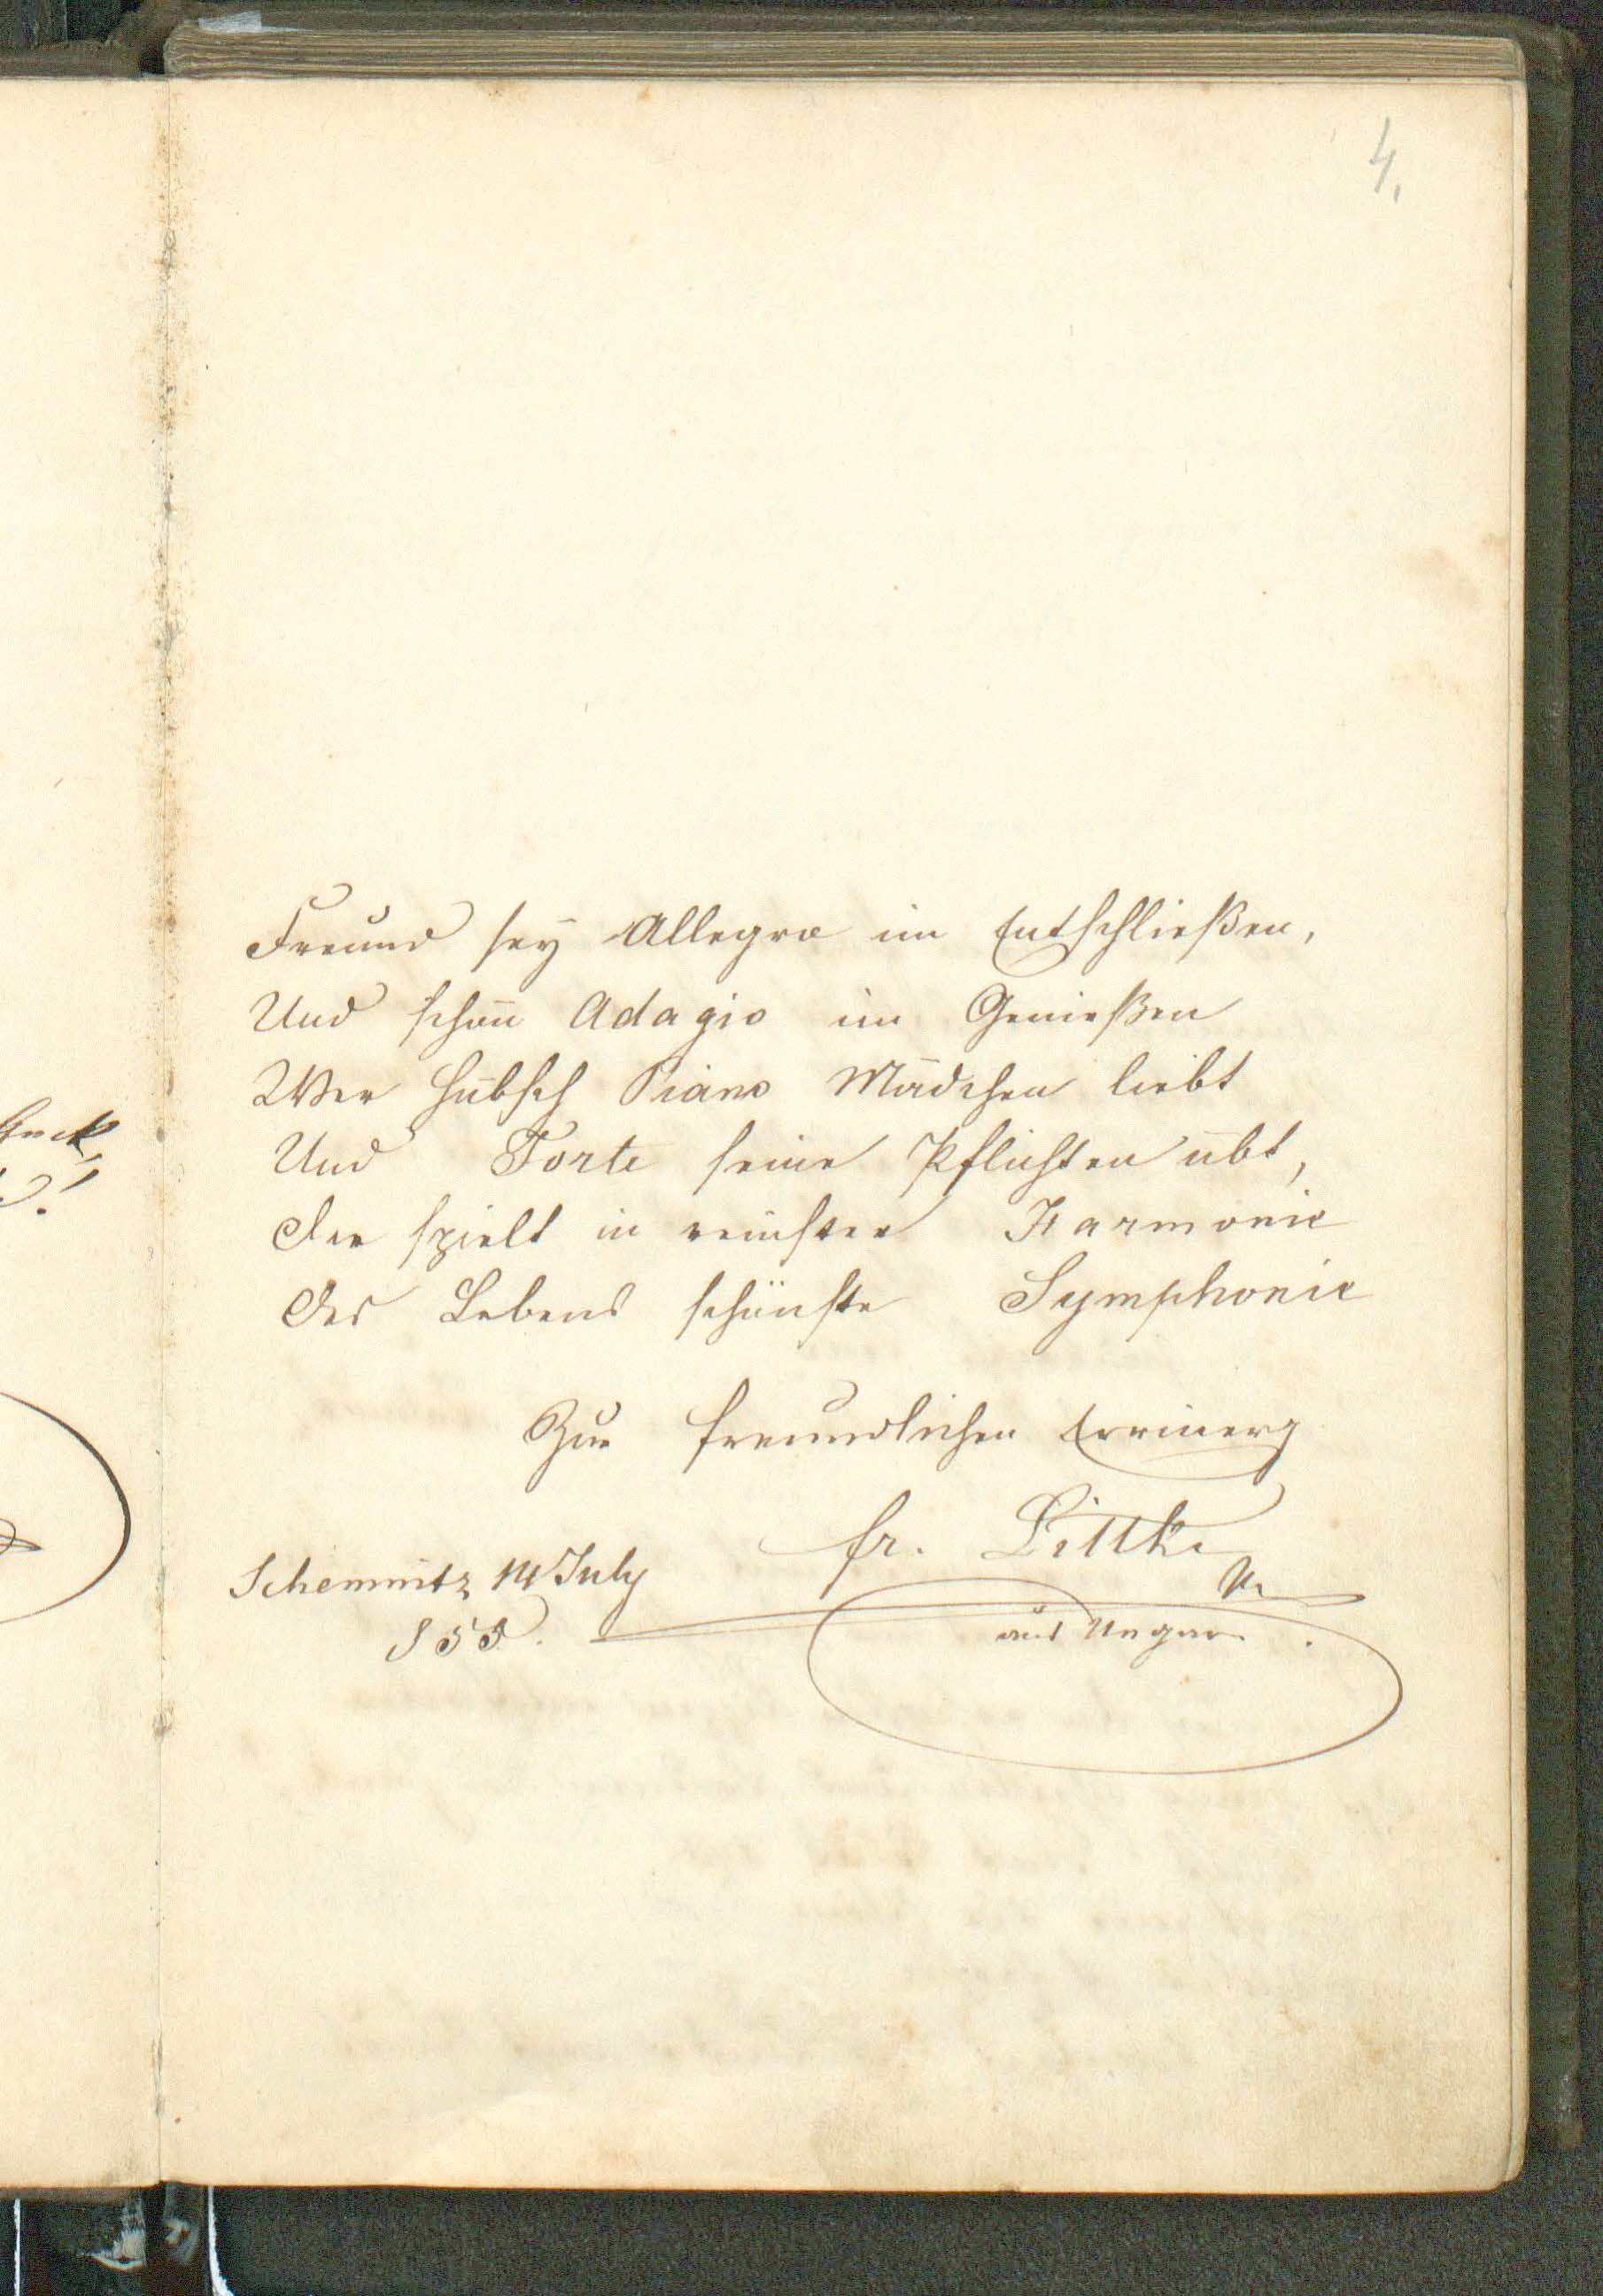 4.
Freund sey Allegro im Entschließen,
Und schön Adagio im Genießen
Wer hübsch Piano Mädchen liebt
Und Forte seine Pflichten übt,
Der spielt in reinster Harmonie
Des Lebens schönste Symphonie
Zur freundlichen Errinerg
fr. Littke
Schemnitz 14 July
855.
aus Ungar.